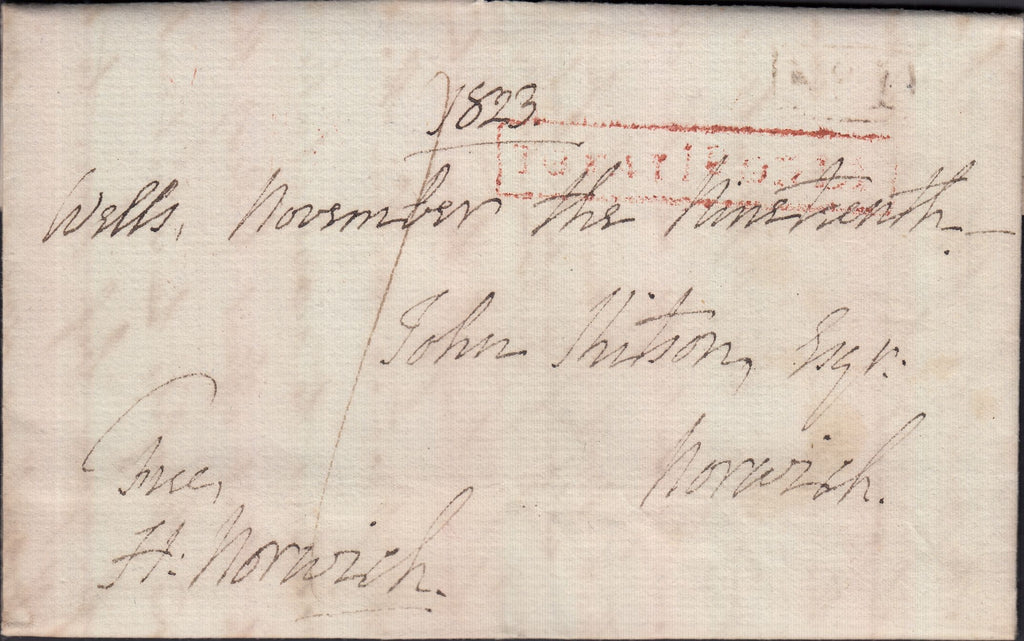 1823.
Wells, November the Nineteenth
John Kitson, Esqr.
Norwich.
Free,
H: Norwich.